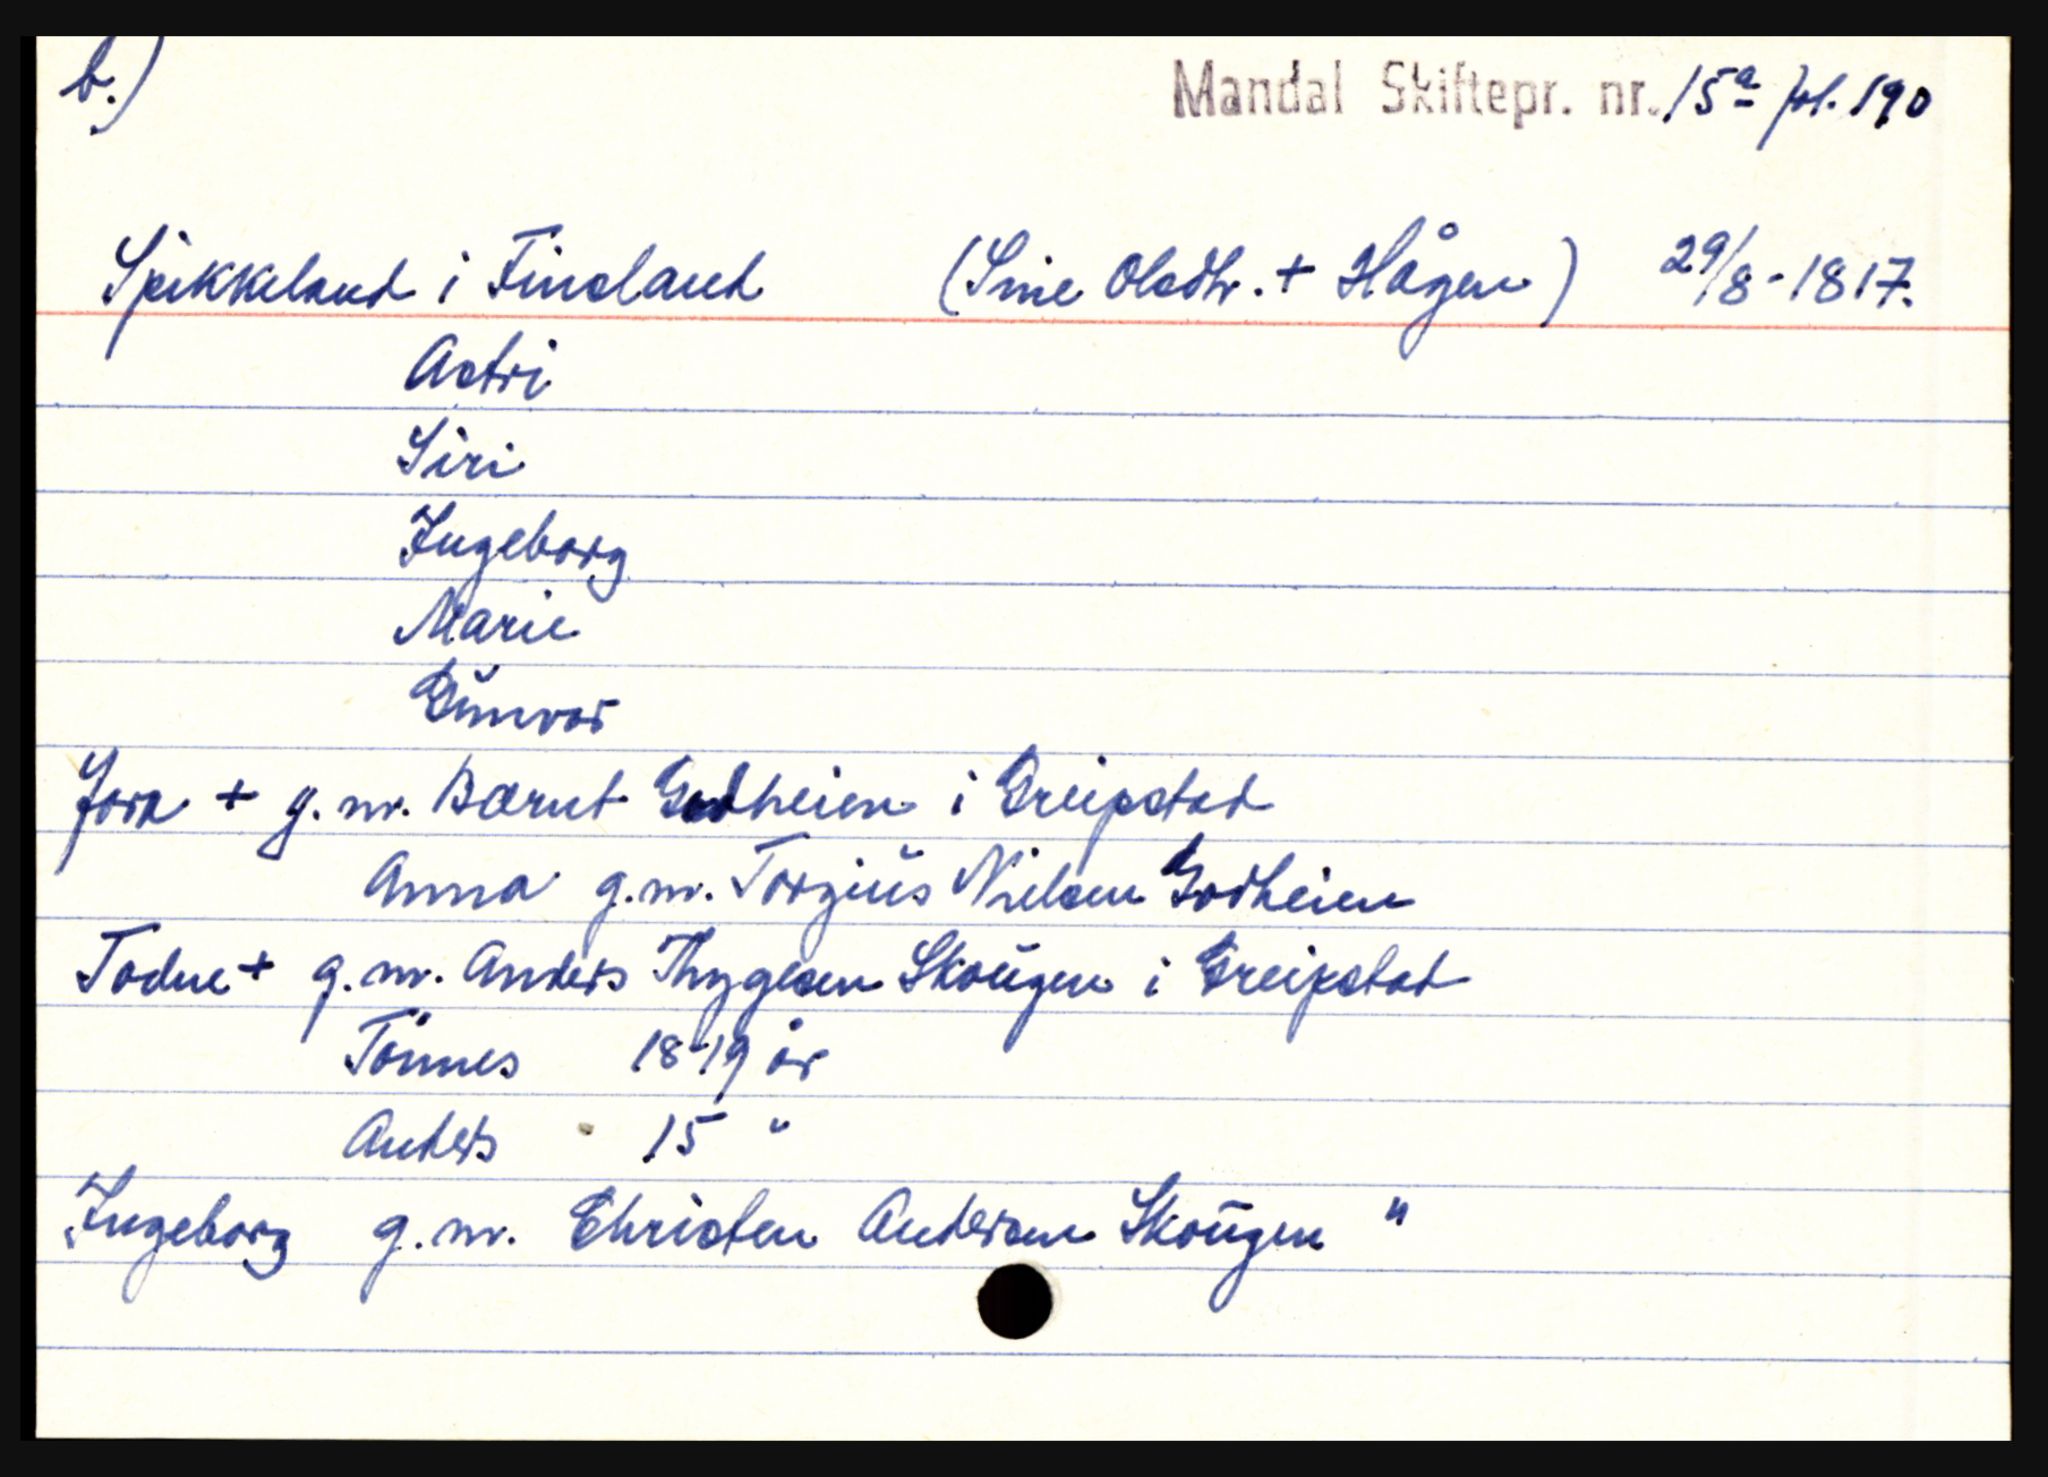 b.)
Mandal Skiftepr. nr. 15a fol. 190
Spikkeland i Finsland (Sine Olsdtr. + Hågen) 29/8-1817.
Astri
Siri
Ingeborg
Marie
Gŭnvor
Jora + g.m. Bærnt Godheien i Greipstad
Anna g.m. Torgiŭs Nielsen Godheien
Todne + g.m. Anders Thygesen Skoŭgen i Greipstad
Tönnes 18-19 år
Anders 15 "
Ingeborg g.m. Christen Andersen Skoŭgen "